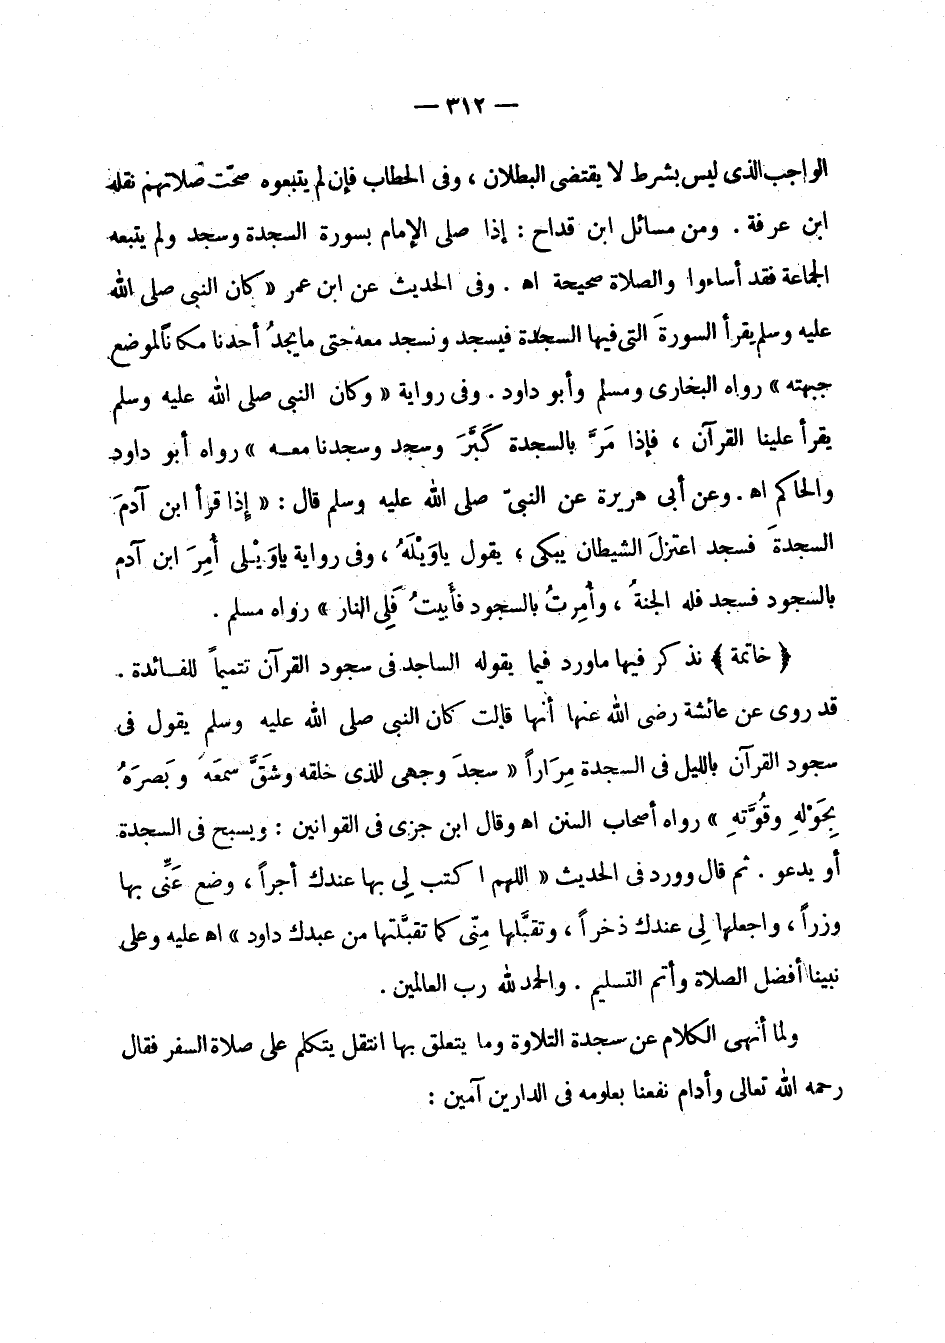 — ٣١٢ —
الواجب الذى ليس بشرط لا يقتضى البطلان ، وفى الحطاب فإن لم يتبعوه صحّت صلاتهم نقله
ابن عرفة . ومن مسائل ابن قداح : إذا صلى الإمام بسورة السجدة وسجد ولم يتبعه
الجماعة فقد أساءوا والصلاة صحيحة اه . وفى الحديث عن ابن عمر « كان النبى صلى الله
عليه وسلم يقرأ السورةَ التى فيها السجدة فيسجد ونسجد معه حتى ما يجدُ أحدنا مكاناً لموضع
جبهته » رواه البخارى ومسلم وأبو داود . وفى رواية « وكان النبى صلى الله عليه وسلم
يقرأ علينا القرآن ، فإذا مَرَّ بالسجدة كَبَّرَ وسجد وسجدنا معه » رواه أبو داود
والحاكم اه . وعن أبى هريرة عن النبىّ صلى الله عليه وسلم قال : « إِذا قرأ ابن آدمَ
السجدةَ فسجد اعتزلَ الشيطان يبكى ؛ يقول ياوَيْلَهُ ، وفى رواية ياوَيْلى أُمِرَ ابن آدم
بالسجود فسجد فله الجنةُ ، وأُمِرتُ بالسجود فأَبيتُ فَلِى النار » رواه مسلم .
﴿ خاتمة ﴾ نذكر فيها ماورد فيما يقوله الساجد فى سجود القرآن تتميماً للفائدة .
قد روى عن عائشة رضى الله عنها أنها قالت كان النبى صلى الله عليه وسلم يقول فى
سجود القرآن بالليل فى السجدة مِرَاراً « سجدَ وجهى للذى خلقه وشَقَّ سمعَه وبَصرَهُ
بِحَوْلِهِ وقُوَّتهِ » رواه أصحاب السنن اه وقال ابن جزى فى القوانين : ويسبح فى السجدة
أو يدعو . ثم قال وورد فى الحديث « اللهم اكتب لِى بها عندك أجراً ، وضع عَنِّى بها
وزراً ، واجعلها لِى عندك ذخراً ، وتقبَّلها مِنّى كما تقبَّلتها من عبدك داود » اه عليه وعلى
نبينا أفضل الصلاة وأتم التسليم . والحمد لله رب العالمين .
ولما أنهى الكلام عن سجدة التلاوة وما يتعلق بها انتقل يتكلم على صلاة السفر فقال
رحمه الله تعالى وأدام نفعنا بعلومه فى الدارين آمين :